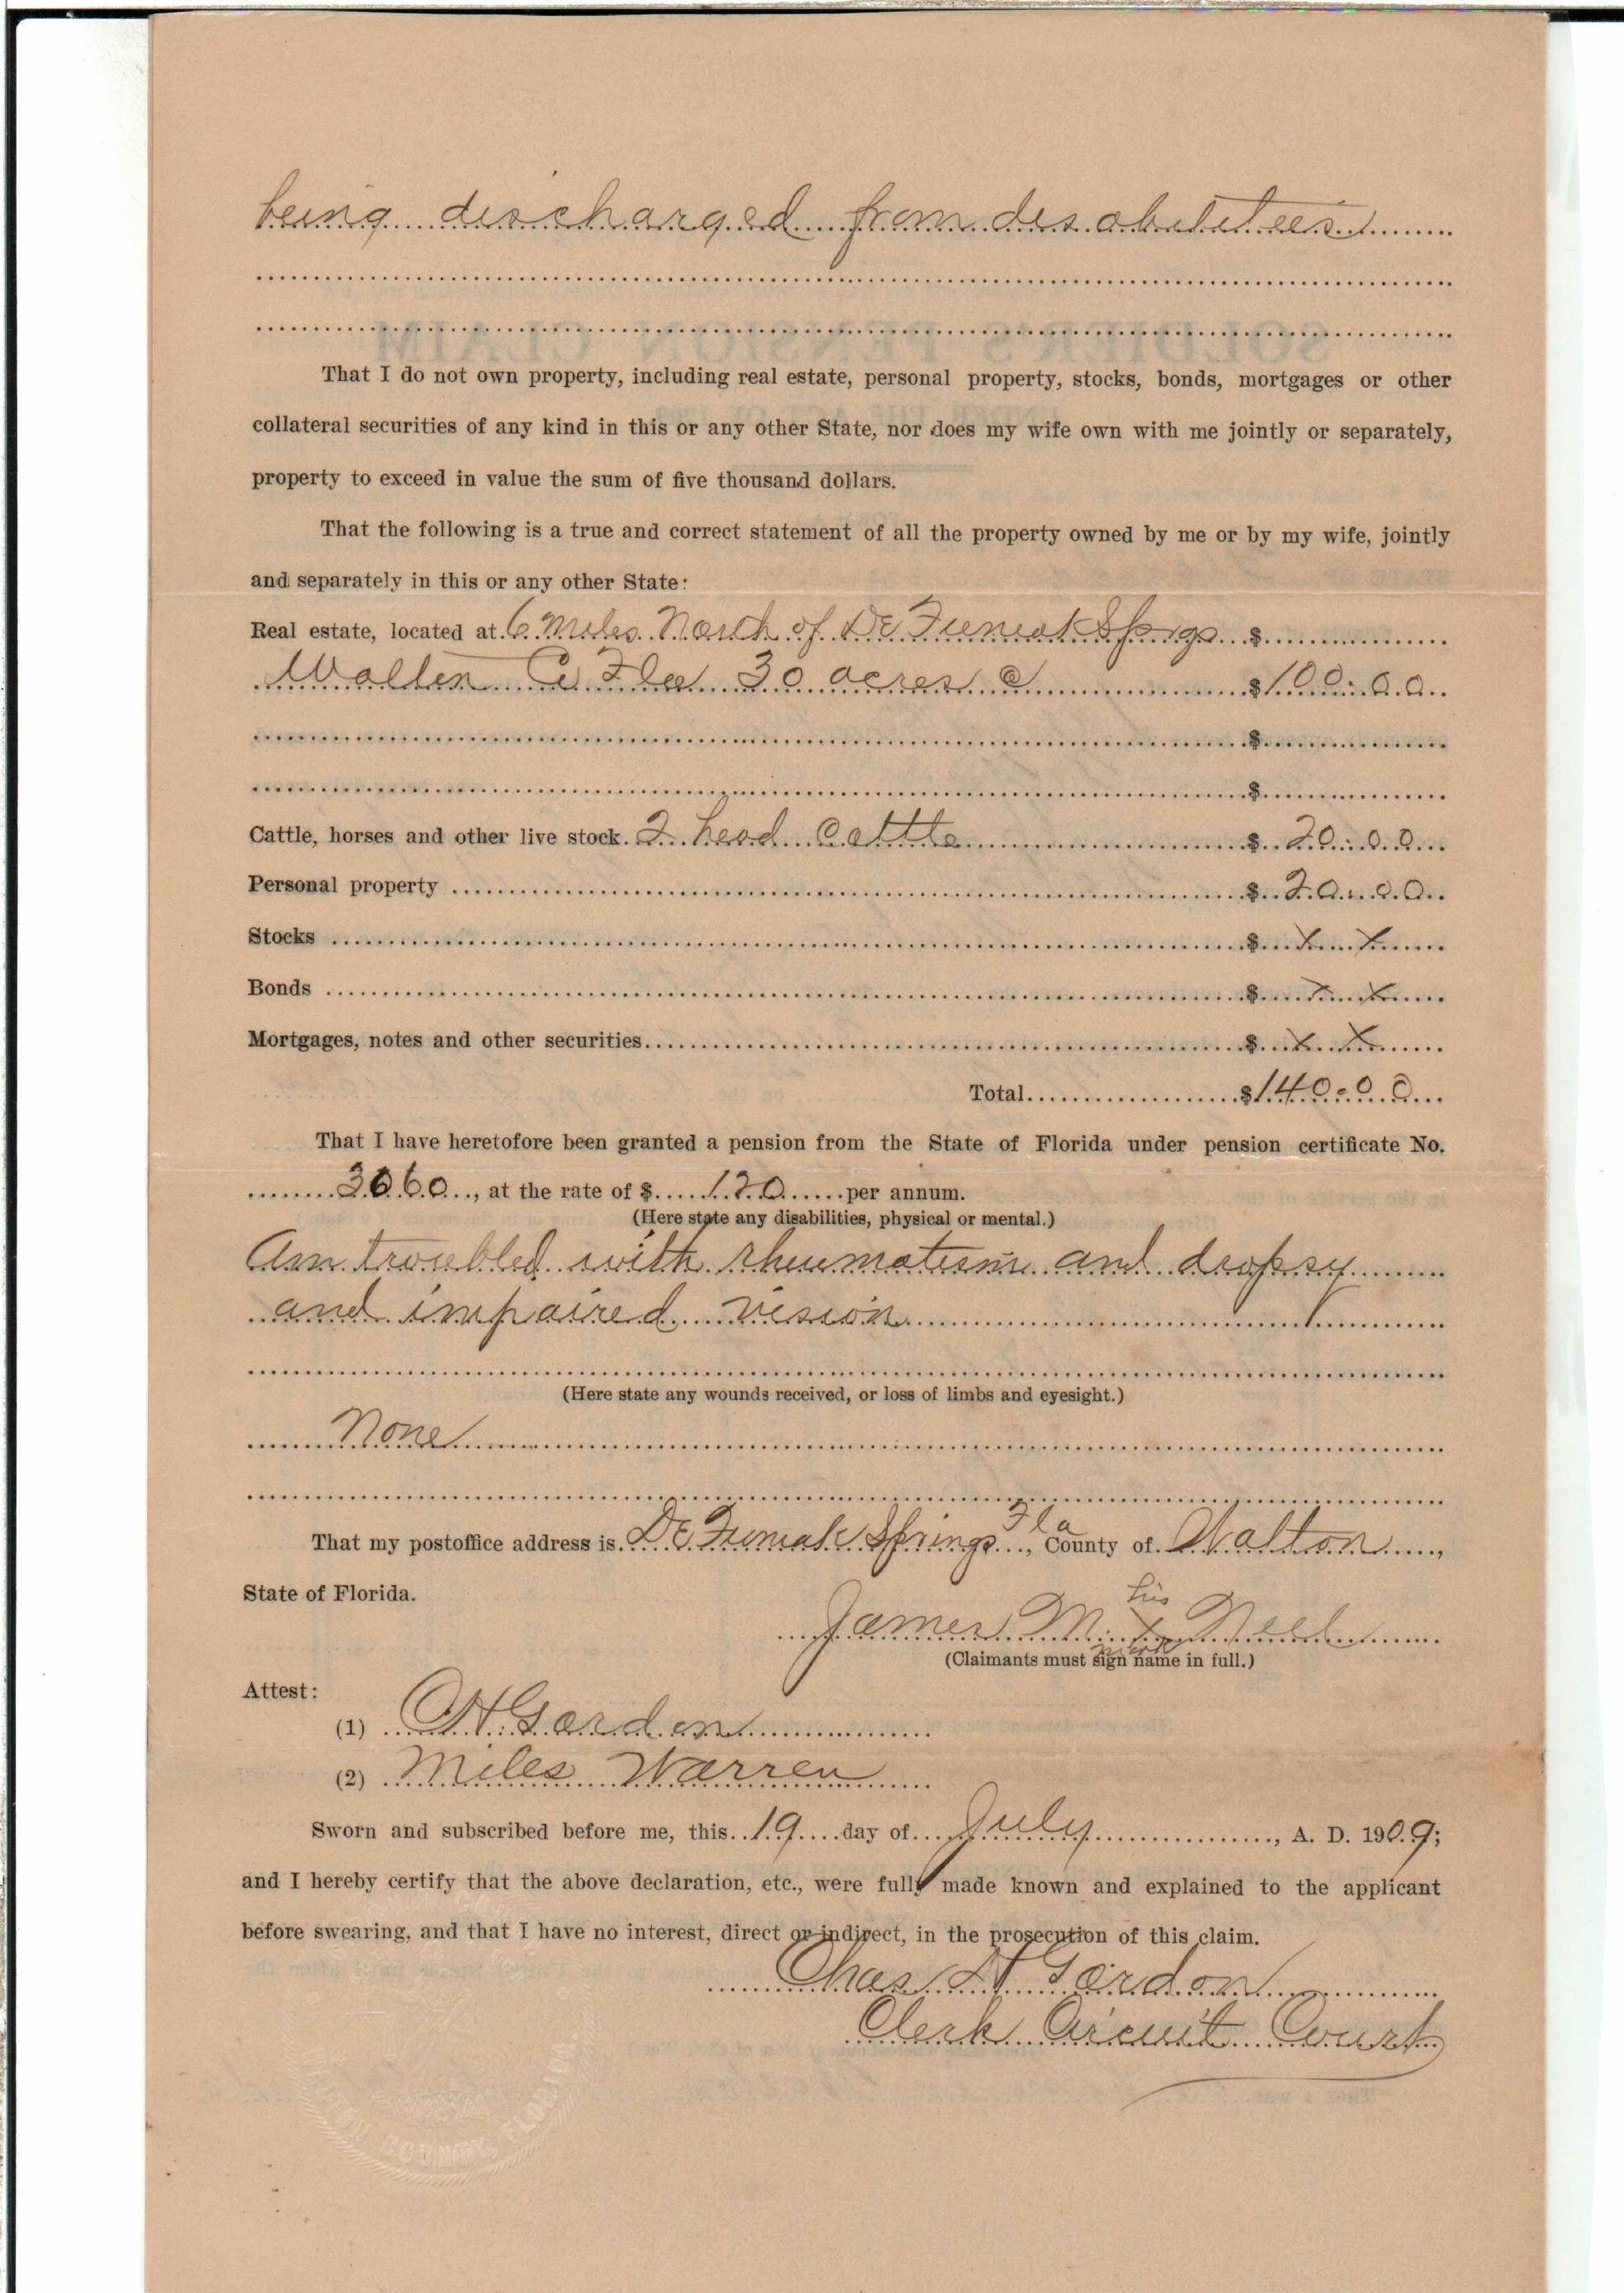 being discharged from disabilitees
That I do not own property, including real estate, personal property, stocks, bonds, mortgages or other
collateral securities of any kind in this or any other State, nor does my wife own with me jointly or separately,
property to exceed in value the sum of five thousand dollars.
That the following is a true and correct statement of all the property owned by me or by my wife, jointly
and separately in this or any other State:
Real estate, located at 6 Miles North of De Funiak Spgs $
Walton Co Fla 30 acres @ $100.00
$
$
Cattle, horses and other live stock. 2 head Cattle $ 20.00
Personal property $ 20.00
Stocks $ x x
Bonds $ x x
Mortgages, notes and other securities $ x x
Total $140.00
That I have heretofore been granted a pension from the State of Florida under pension certificate No.
3060, at the rate of $ 120 per annum.
(Here state any disabilities, physical or mental.)
Am troubled with rheumatism and dropsy
and impaired vision
(Here state any wounds received, or loss of limbs and eyesight.)
None
That my postoffice address is De Funiak Springs Fla, County of Walton,
State of Florida.
his
James M. x Neel
mark
(Claimants must sign name in full.)
Attest:
(1) C H Gordon
(2) Miles Warren
Sworn and subscribed before me, this 19 day of July, A. D. 1909;
and I hereby certify that the above declaration, etc., were fully made known and explained to the applicant
before swearing, and that I have no interest, direct or indirect, in the prosecution of this claim.
Chas H Gordon
Clerk Circuit Court
COUNTY, FLORIDA